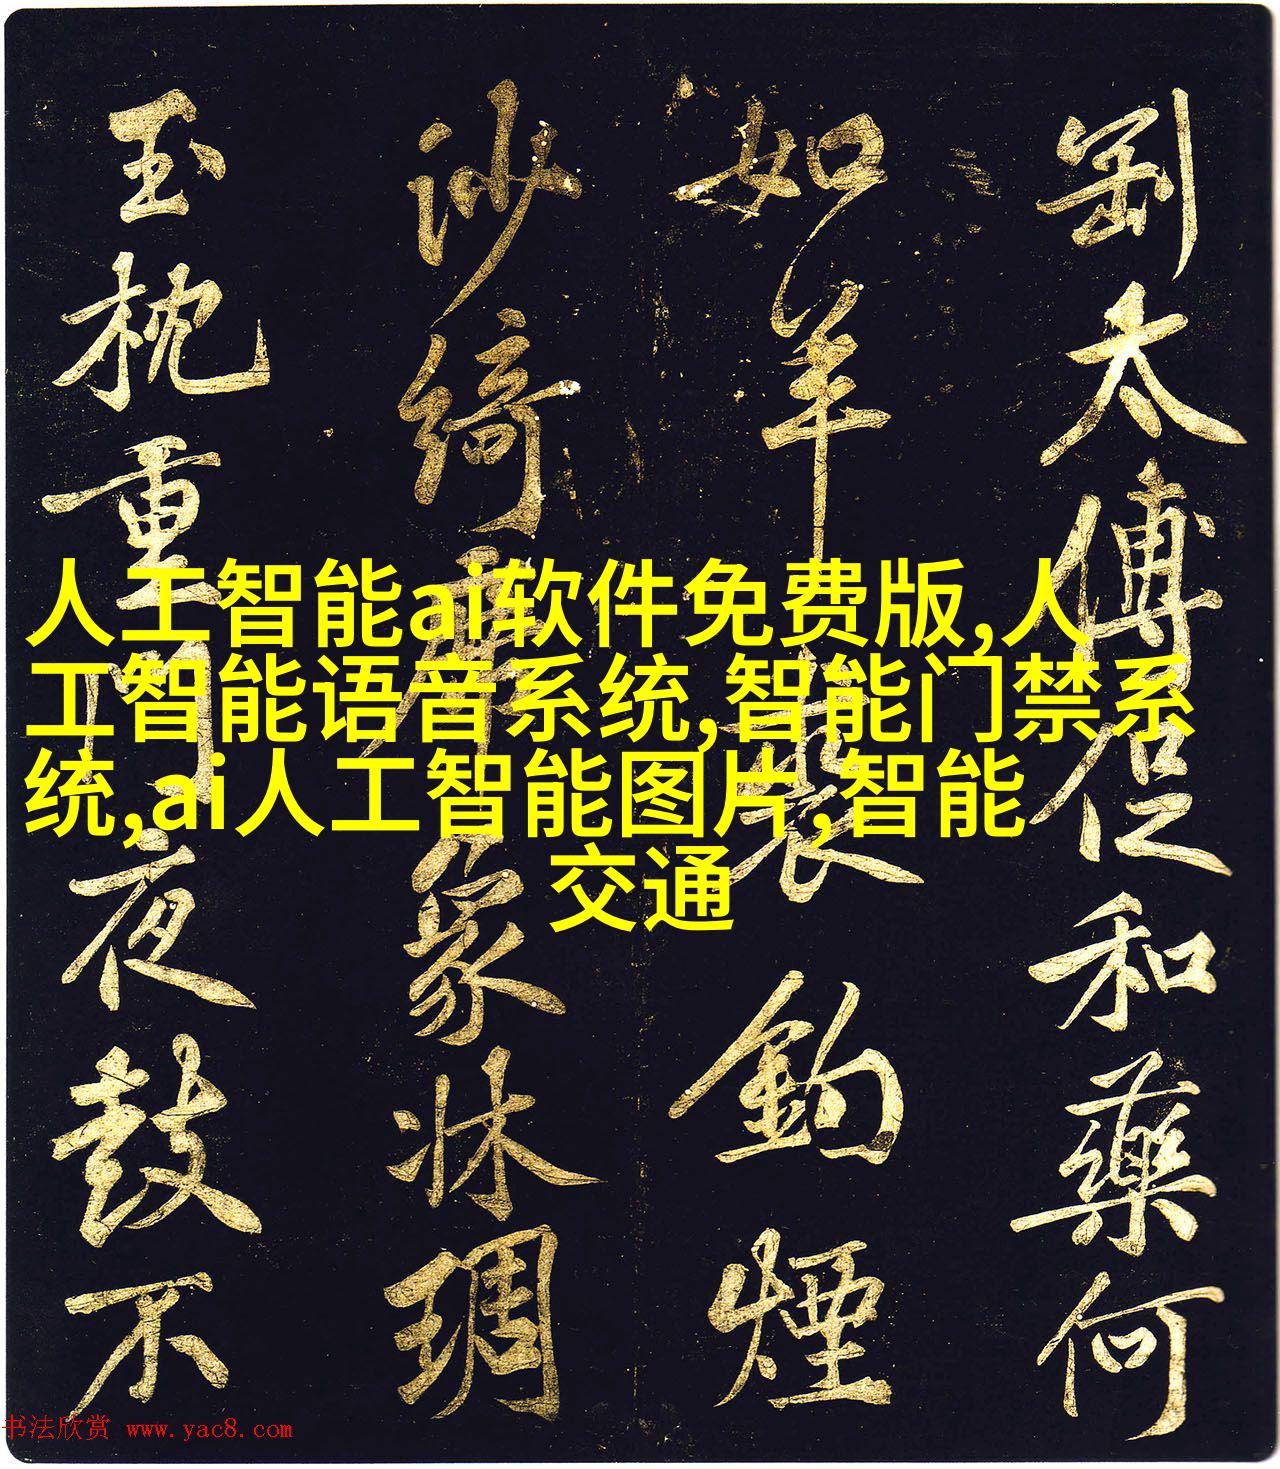 太傅但和藥何
如羊裘釣煙
沙綺席象牀琱
玉枕重門夜鼓不
人工智能ai软件免费版,人
工智能语音系统,智能门禁系
统,ai人工智能图片,智能
交通
书法欣赏 www.yac8.com